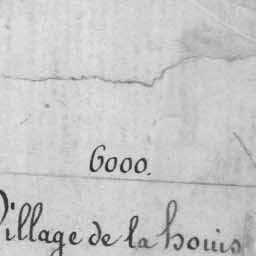 6000.
Village de la